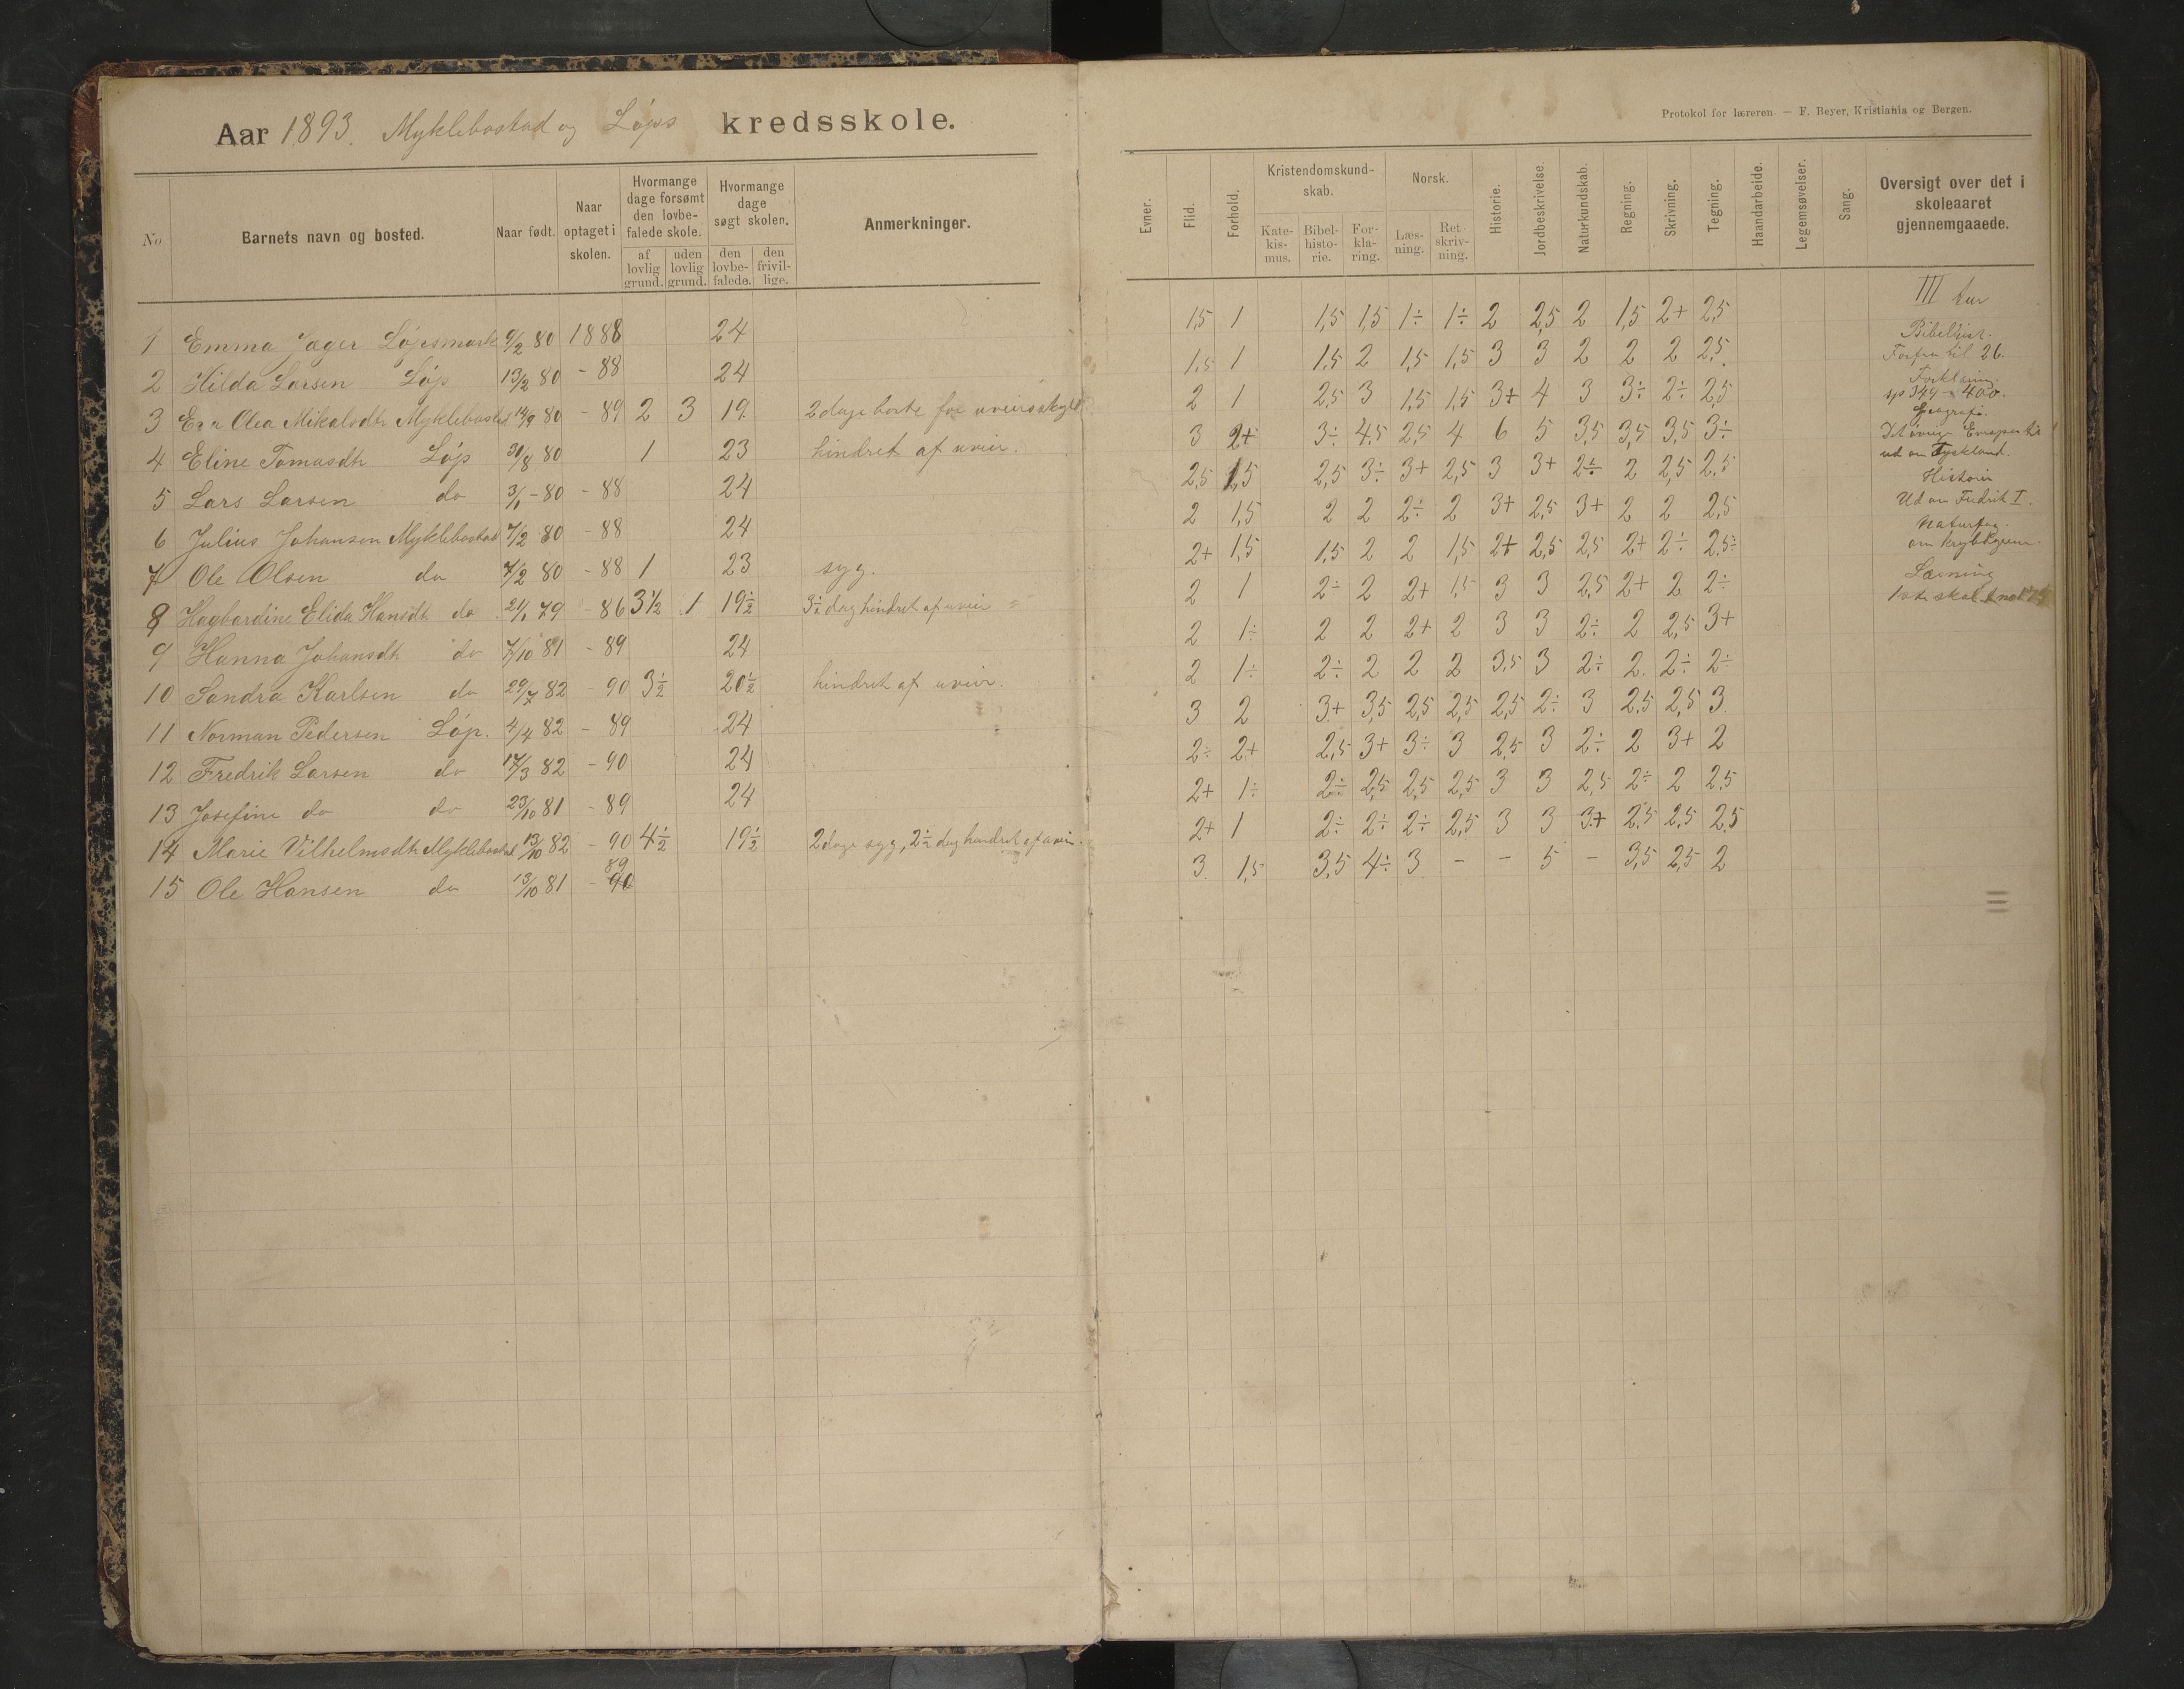 Aar 1893. Myklebostad og Løps kredsskole.
No
Barnets navn og bosted.
Naar født.
Naar optaget i skolen.
Hvormange dage forsømt den lovbefalede skole.
af lovlig grund.
uden lovlig grund.
Hvormange dage søgt skolen.
den lovbefalede.
den frivillige.
Anmerkninger.
1 Emma Jæger Løpsmark 9/2 80 1888 24
2 Hilda Larsen Løp 13/2 80 - 88 24
3 Eva Olea Mikalsdtr Myklebostad 14/9 80 - 89 2 3 19 2 dage borte for uveirsskyld
4 Eline Tomasdtr Løp 31/8 80 1 23 hindret af uveir.
5 Lars Larsen do 3/1 - 80 - 88 24
6 Julius Johansen Myklebostad 7/2 80 - 88 24
7 Ole Olsen do 7/2 80 - 88 1 23 syg.
8 Hagbardine Elida Hansdtr do 21/1 79 - 86 3 1/2 1 19 1/2 3 1/2 dag hindret af uveir
9 Hanna Johansdtr do 7/10 81 - 89 24
10 Sandra Karlsen do 29/7 82 - 90 3 1/2 20 1/2 hindret af uveir.
11 Norman Pedersen Løp. 4/4 82 - 89 24
12 Fredrik Larsen do 17/3 82 - 90 24
13 Josefine do do 23/10 81 - 89 24
14 Marie Vilhelmsdtr Myklebostad 13/10 82 - 90 4 1/2 19 1/2 2 dage syg, 2 1/2 dag hindret af uveir.
15 Ole Hansen do 13/10 81 - 89
Protokol for læreren. — F. Beyer, Kristiania og Bergen.
Evner.
Flid.
Forhold.
Kristendomskundskab.
Katekismus.
Bibelhistorie.
Forklaring.
Norsk.
Læsning.
Retskrivning.
Historie.
Jordbeskrivelse.
Naturkundskab.
Regning.
Skrivning.
Tegning.
Haandarbeide.
Legemsøvelser.
Sang.
Oversigt over det i skoleaaret gjennemgaaede.
1,5 1 1,5 1,5 1÷ 1÷ 2 2,5 2 1,5 2+ 2,5
1,5 1 1,5 2 1,5 1,5 3 3 2 2 2 2,5
2 1 2,5 3 1,5 1,5 3+ 4 3 3÷ 2÷ 2,5
3 2+ 3÷ 4,5 2,5 4 6 5 3,5 3,5 3,5 3÷
2,5 1,5 2,5 3÷ 3+ 2,5 3 3+ 2÷ 2 2,5 2,5
2 1,5 2 2 2÷ 2 3+ 2,5 3+ 2 2 2,5
2+ 1,5 1,5 2 2 1,5 2+ 2,5 2,5 2+ 2÷ 2,5÷
2 1 2÷ 2 2+ 1,5 3 3 2,5 2+ 2 2÷
2 1÷ 2 2 2+ 2 3 3 2÷ 2 2,5 3+
2 1÷ 2÷ 2 2 2 3,5 3 2÷ 2 2÷ 2÷
3 2 3+ 3,5 2,5 2,5 2,5 2÷ 3 2,5 2,5 3
2÷ 2+ 2,5 3+ 3÷ 3 2,5 3 2÷ 2 3+ 2
2+ 1÷ 2÷ 2,5 2,5 2,5 3 3 2,5 2÷ 2 2,5
2+ 1 2÷ 2÷ 2÷ 2,5 3 3 3+ 2,5 2,5 2,5
3 1,5 3,5 4÷ 3 - - 5 - 3,5 2,5 2
III kur
Bibelhist.
Forfra til 26.
Forklaring.
sp 344 - 400.
Geografi.
Det øvrige Europa
ud om Tyskland.
Historie
Ud om Fredrik I.
Naturfag.
om krybdyrene.
Læsning